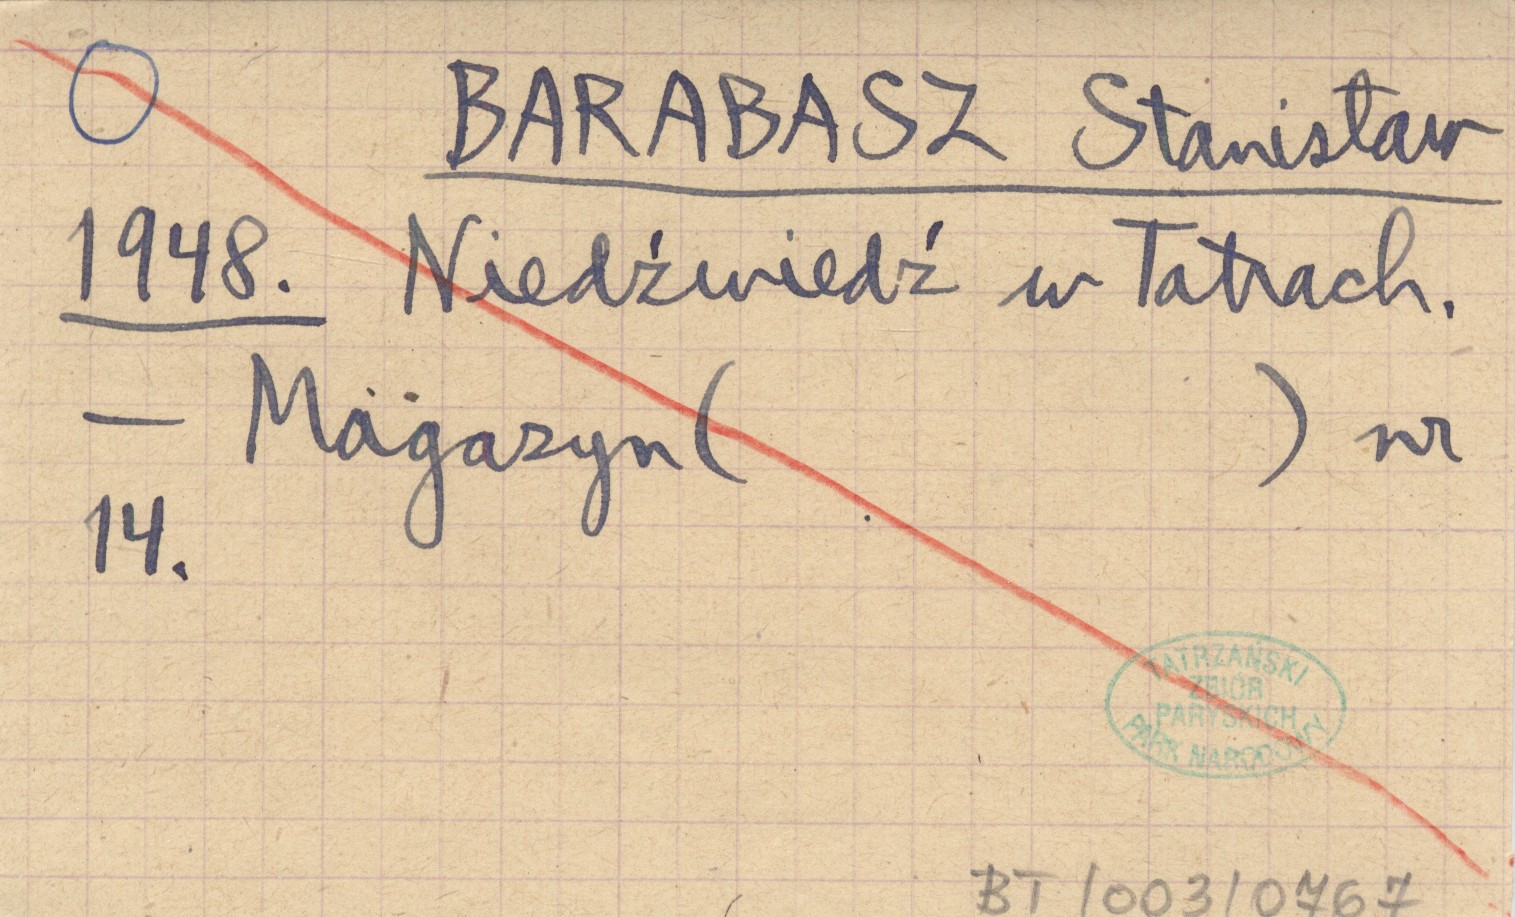 BARABASZ Stanisław
1948. Niedźwiedź w Tatrach.
— Magazyn ( ) nr
14.
TATRZAŃSKI
ZBIÓR
PARYSKICH
PARK NARODOWY
BT/003/0767